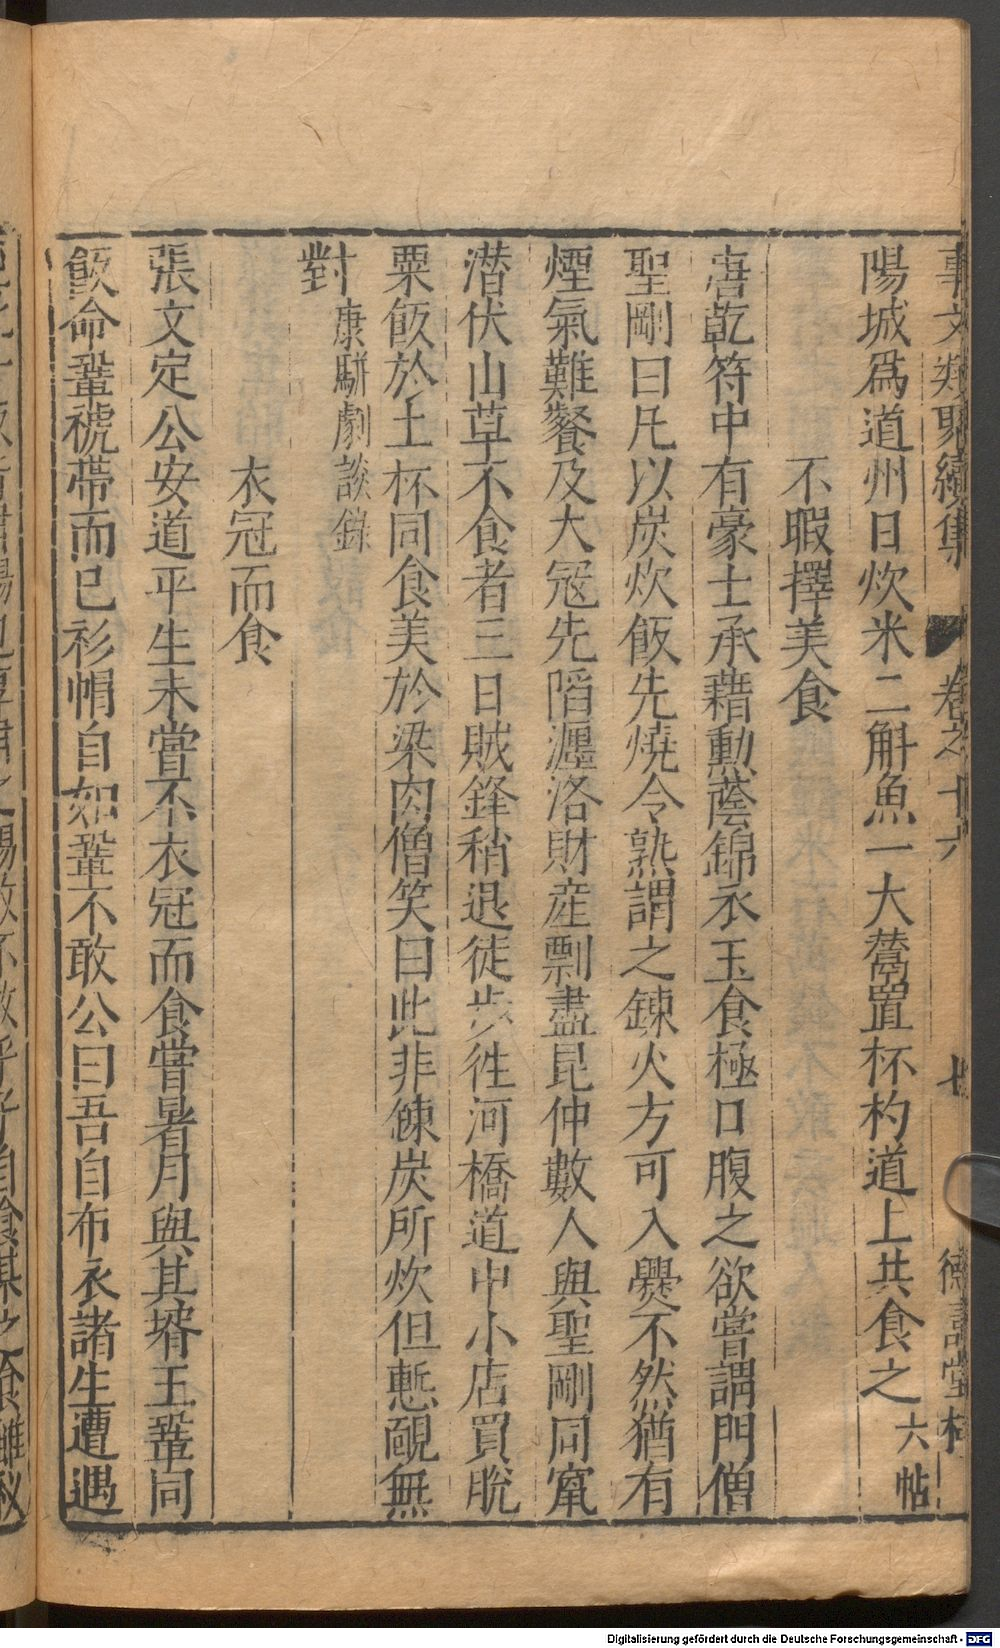 事文類聚續集 卷之十六 七 德壽堂梓
陽城爲道州日炊米二斛魚一大鬵置杯杓道上共食之六帖
不暇擇美食
唐乾符中有豪士承藉勲蔭錦衣玉食極口腹之欲嘗謂門僧
聖剛曰凡以炭炊飯先燒令熟謂之鍊火方可入爨不然猶有
煙氣難餐及大冦先䧟瀍洛財産剽盡昆仲數人與聖剛同窜
潜伏山草不食者三日賊鋒稍退徒步徃河橋道中小店買脫
粟飯於土杯同食美於梁肉僧笑曰此非餗炭所炊但慙靦無
對康駢劇談錄
衣冠而食
張文定公安道平生未嘗不衣冠而食嘗暑月與其壻王鞏同
飯命鞏褫帶而已衫帽自如鞏不敢公曰吾自布衣諸生遭遇